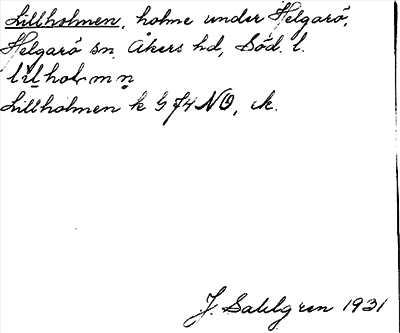 Lillholmen, holme under Helgarö,
Helgarö sn, Åkers hd, Söd. l.
Lillholmen k G 74 NO, ek.
J. Sahlgren 1931